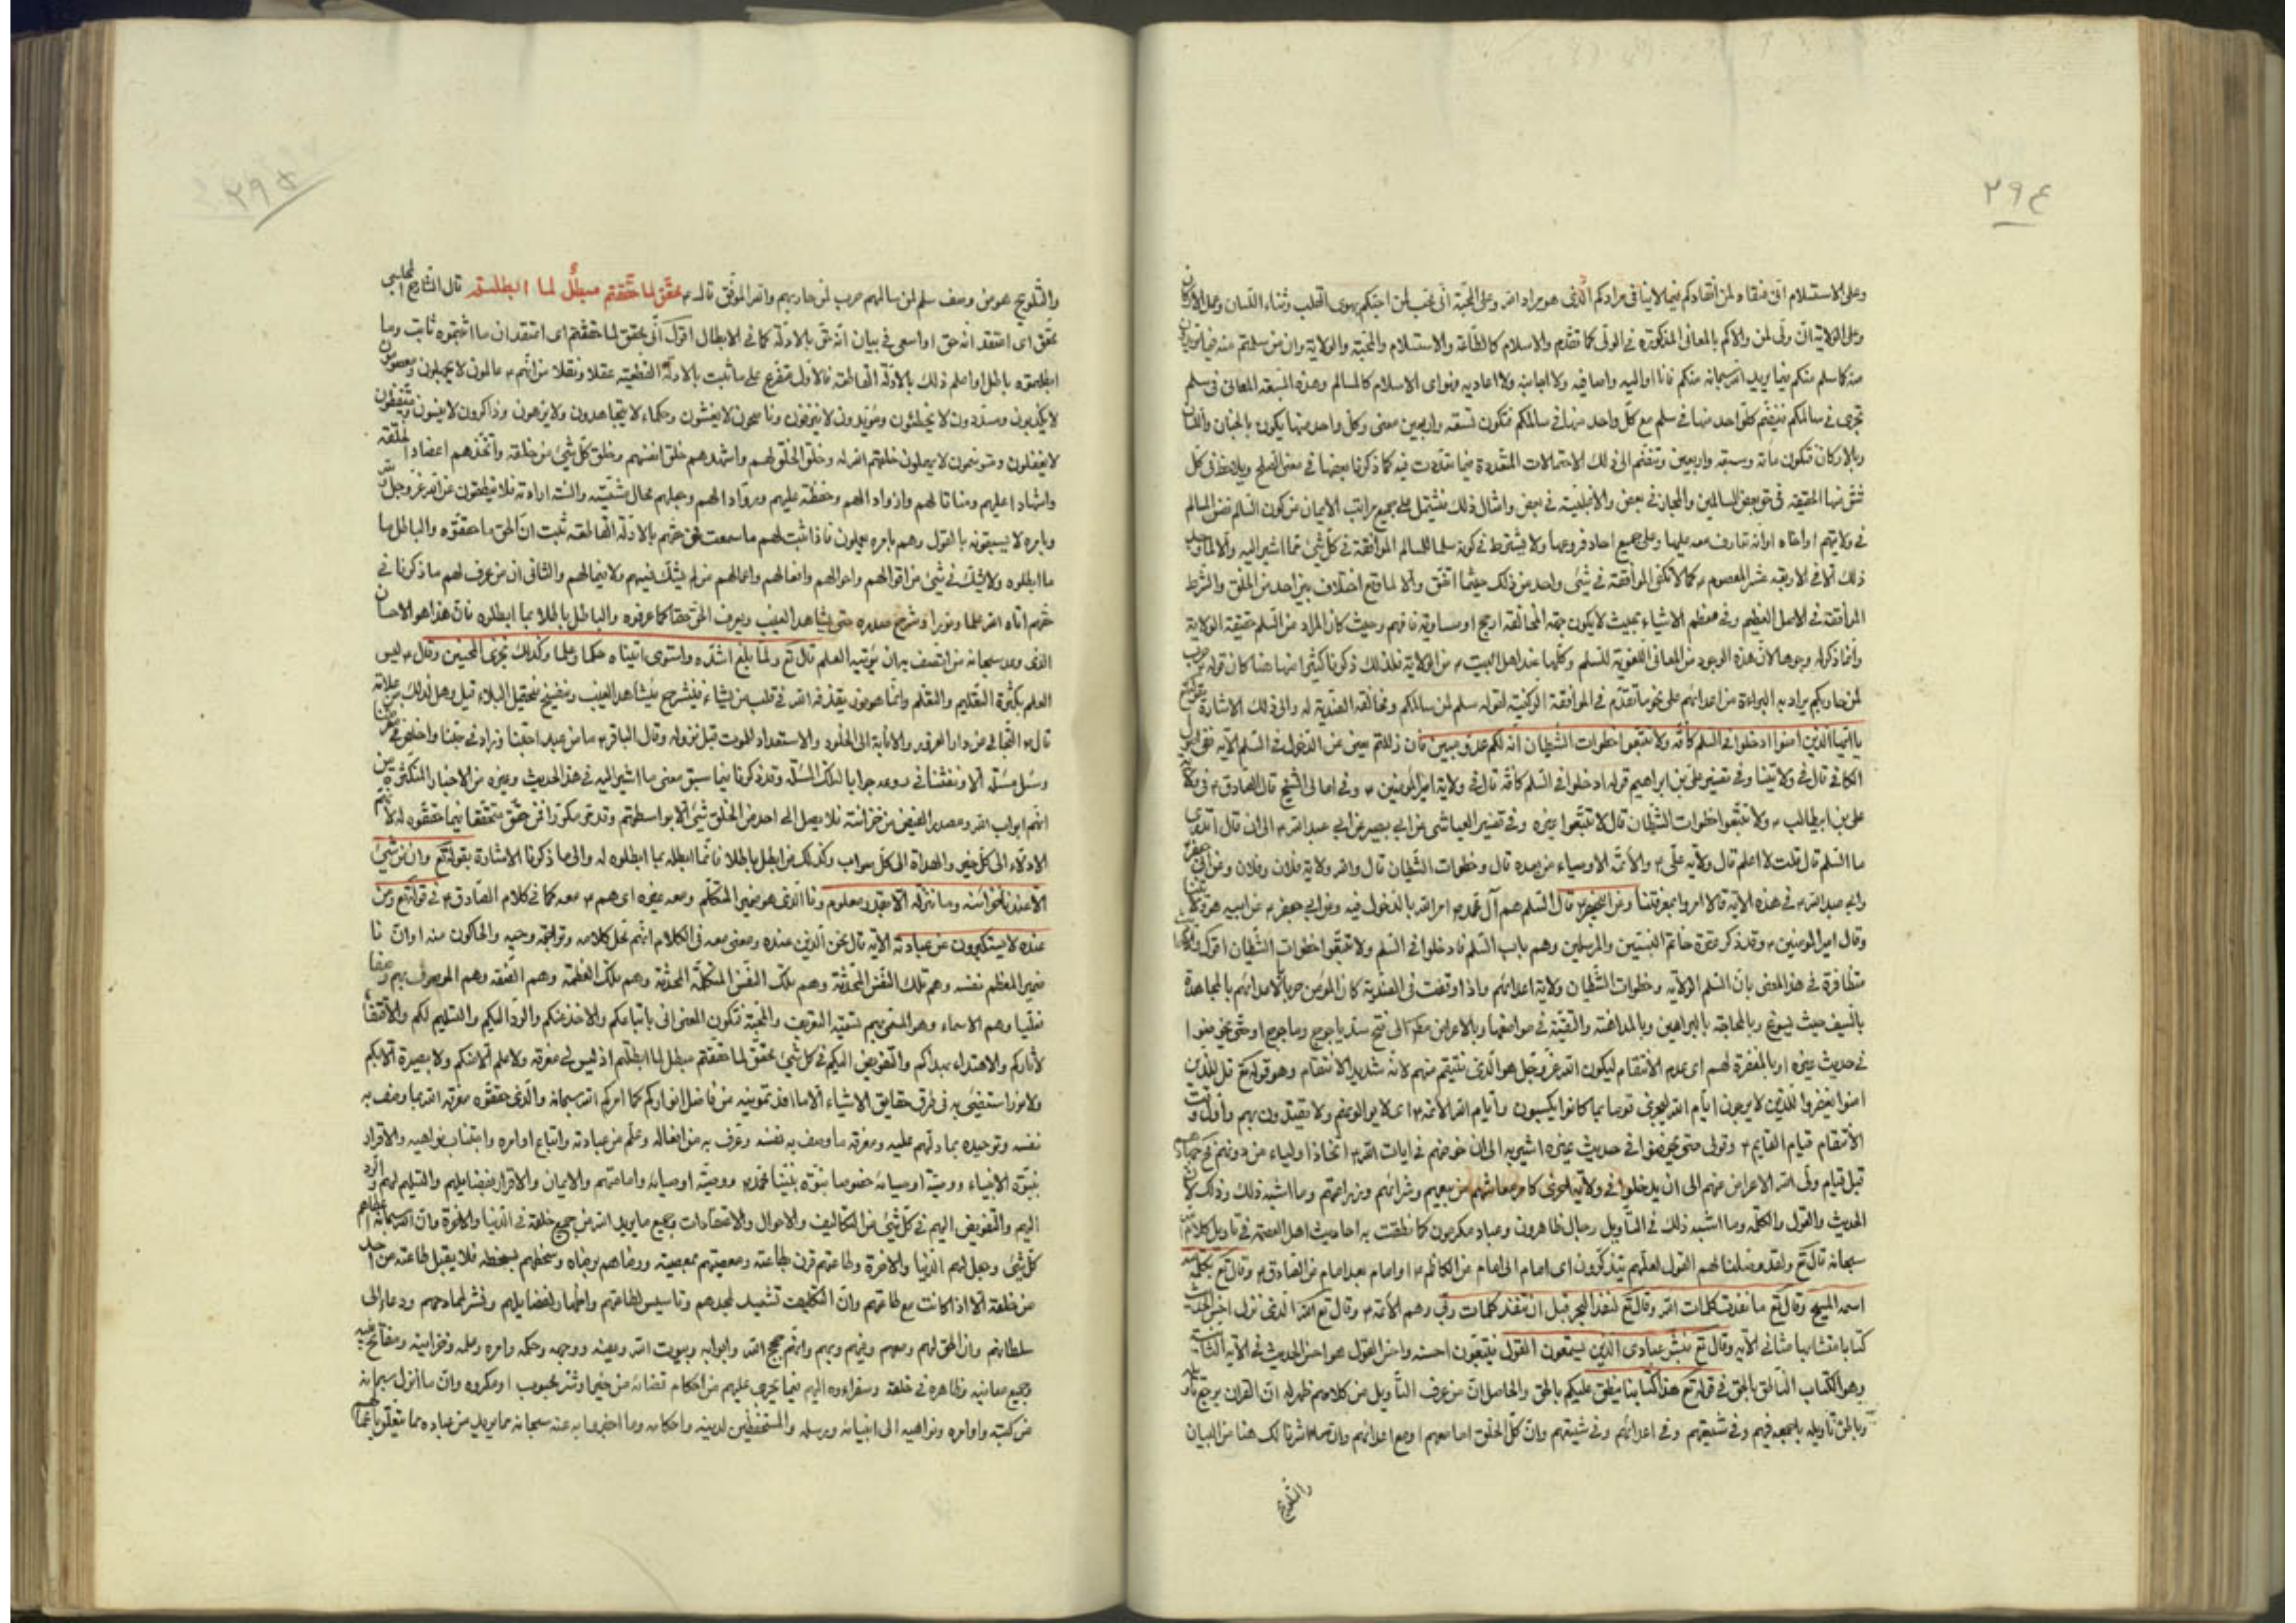 ٢٩٤
وعلى الاستسلام اني منقاد لمن انقاد لكم فيما لا ينافي مرادكم الّذي هو مراد الله وعلى المحبّة اني محب لمن احبّكم بهوى القلب وثناء اللسان وعمل الاركان
وعلى الولاية انّي وليّ لمن والاكم بالمعاني المذكورة في الولّى كما تقدّم والاسلام كالطّاعة والاستسلام والمحبّة والولاية وان من سلمتم
سلم منكم فيما يريد الله سبحانه منكم فانا اواليه واصافيه ولا اجانبه ولا اعاديه وينواى الاسلام كالمسالم وهذه السبعة المعاني في سلم
تجرى في سالمكم فيضم كلّ واحد منها في سلم مع كلّ واحد منها في سالمكم فتكون تسعة واربعين معنى وكلّ واحد منها يكون بالجنان واللسان
وبالاركان فتكون مائة وسبعة واربعين وتنضم الى ذلك الاحتمالات المتعددة فيما تعدّدت فيه كما ذكرنا بعضها في معنى الصلح ويلاحظ في كل
شقّ منها الحقيقة في حق بعض المسالمين والمجاز في بعض والاغلبيّة في بعض وامثال ذلك فيشتمل على جميع مراتب الايمان من كون السّالم
في ولايتهم
ذلك الّا في الاربعة عشر المعصوم كما لا تكفى الموافقة في شئ واحد من ذلك حيثما اتّفق والّا لما وقع اختلاف بين احد من الخلق والشّرط
الموافقة في الاصل العظيم وفي معظم الاشياء بحيث لا يكون جهة المخالفة ارجح او مساوية فافهم وحيث كان المراد من السّلم حقيقة الولاية
وانّما ذكر له وجوها لانّ هذه الوجوه من المعاني اللغويّة للسّلم وكلّها عند اهل البيت من الولاية فلذلك ذكرنا كثيرا منها هنا كان قوله حرب
لمن حاربكم يراد به البراءة من اعدائهم على نحو ما تقدّم في الموافقة الركنيّة لقوله سلم لمن سالمكم ومخالفه الضديّة له والى ذلك الاشارة بقوله تع
يا ايّها الّذين امنوا ادخلوا في السّلم كافّة ولا تتّبعوا خطوات الشّيطان انّه لكم عدوّ مبين فان زللتم يعنى عن الدّخول في السّلم الآية ففي اصول
الكافي قال في ولايتنا وفي تفسير علىّ بن ابراهيم قوله ادخلوا في السّلم كافّة قال في ولاية امير المؤمنين وفي امالي الشّيخ قال الصّادق في ولاية
على بن ابيطالب ولا تتّبعوا خطوات الشّيطان قال لا تتّبعوا غيره وفي تفسير العياشى عن ابي بصير عن ابي عبد الله الى ان قال اتدرى
ما السّلم قال قلت لا اعلم قال ولاية علىّ والائمّة الاوصياء من بعده قال وخطوات الشّيطان قال والله ولاية فلان وفلان وعن ابي جعفر
وابي عبد الله في هذه الآية قالا امروا بمعرفتنا وعن ابيجعفر قال السّلم هم آل محمد امر الله بالدّخول فيه وعن ابي جعفر عن ابيه
وقال امير المؤمنين وقد ذكر عترة خاتم النّبيّين والمرسلين وهم باب السّلم فادخلوا في السّلم ولا تتّبعوا خطوات الشّيطان اقول والرّوايات
متظافرة في هذا المعنى بانّ السّلم الولاية وخطوات الشّيطان ولاية اعدائهم واذا وقعت في الضديّة كان المؤمن حربا لاعدائهم بالمجاهدة
بالسّيف حيث يسوغ وبالمحاجّة بالبراهين وبالمداهنة والتّقيّة في مواضعها وبالاعراض عنهم الى فتح سدّ ياجوج وماجوج او حتّى يخوضوا
في حديث غيره او بالمغفرة لهم اى بعدم الانتقام ليكون الله عزّ وجلّ هو الّذي ينتقم منهم لانّه شديد الانتقام وهو قوله تع قل للذين
امنوا يغفروا للذين لا يرجون ايّام الله ليجزى قوما بما كانوا يكسبون وايّام الله الائمّة اى لا يوالونهم ولا يقتدون بهم واوّل وقت
الانتقام قيام القايم وقولى حتى يخوضوا في حديث غيره اشير به الى ان خوضهم في ايات الله اتخاذ اولياء من دونهم
قبل قيام وليّ الله الاعراض عنهم الى ان يدخلوا في ولاية كامر معاشهم من بيعهم وشرائهم وزراعتهم وما اشبه ذلك وذلك لانّ
الحديث والقول والكلمة وما اشبه ذلك في التّأويل رجال ظاهرون وعباد مكرمون كما نطقت به احاديث اهل العصمة في تاويل كلام الله
سبحانه قال تع ولقد وصلنا لهم القول لعلّهم يتذكّرون اى امام الى امام عن الكاظم او امام بعد امام عن الصادق وقال تع بكلمة منه
اسمه المسيح وقال تع ما نفدت كلمات الله وقال تع لنفد البحر قبل ان تنفد كلمات ربي وهم الائمّة وقال تع الله الّذي نزل احسن الحديث
كتابا متشابها مثاني الآية وقال تع فبشّر عبادى الّذين يستمعون القول فيتّبعون احسنه واحسن القول هو احسن الحديث في الآية الثانية
وهو الكتاب النّاطق بالحق في قوله تع هذا كتابنا ينطق عليكم بالحق والحاصل انّ من عرف التّأويل من كلامهم ظهر له انّ القران يرجع
وباطن تاويله باجمعه فيهم وفي شيعتهم وفي اعدائهم وانّ كلّ الخلق امّا معهم او مع اعدائهم هنا من البيان
والتّلويح
٢٩٥
والتّلويح هو من وصف سلم لمن سالمهم حرب لمن حاربهم والله الموفّق قال محقّق لما حقّقتم مبطلٌ لما ابطلتم قال الشّارح المجلسي
محقّق اى اعتقد انّه حق او اسعى في بيان انّه حقّ بالادلّة كما في الابطال اقول انّى محقق لما حققتم اى اعتقد ان ما اثبتموه ثابت وما
ابطلتموه باطل او اعلم ذلك بالادلّة القاطعة فالاوّل متفرع على ما ثبت بالادلّة القطعيّة عقلا ونقلا من انّهم عالمون لا يجهلون ومعصومون
لا يكذبون ومسدّدون لا يخطئون ومؤيّدون لا يزيغون وناصحون لا يغشون وحكماء لا يتجاهدون ولا يزهون وذاكرون لا ينسون ومتيقظون
لا يغفلون ومتوسّمون لا يجهلون خلقهم الله له وخلق الخلق لهم واشهدهم خلق انفسهم وخلق كلّ شئ من خلقه واتّخذهم اعضادا لخلقه
واشهادا عليهم ومناتا لهم وازوادا لهم وحفظة عليهم وروّادا لهم وجعلهم محالّ مشيّته والسنة ارادته فلا ينطقون عن الله عزّ وجلّ
وبامره لا يسبقونه بالقول وهم بامره يعملون فاذا ثبت لهم ما سمعت في حقهم بالادلّة القاطعة ثبت انّ الحق ما حقّقوه والباطل ما
ما ابطلوه ولا شك في شئ من اقوالهم واحوالهم وافعالهم واعمالهم من لم يشكّ فيهم ولا فيما لهم والثانى ان من عرف لهم ما ذكرنا في
حقهم اتاه الله علما ونورا وشرح صدره حتى يشاهد الغيب ويعرف الحق حقّا كما عرفوه والباطل باطلا بما ابطلوه فانّ هذا هو الاحسان
الذى وعد سبحانه من اتّصف به ان يؤتيه العلم قال تع ولمّا بلغ اشدّه واستوى اتيناه حكما وعلما وكذلك نجزى المحسنين وقال ليس
العلم بكثرة التّعليم والتّعلّم وانّما هو نور يقذفه الله في قلب من يشاء فينشرح فيشاهد الغيب وينفسح فيحتمل البلاء قيل وهل لذلك من علامة
قال التّجافي عن دار الغرور والانابة الى الخلود والاستعداد للموت قبل نزوله وقال الباقر ما من عبد احبّنا وزاد في حبّنا واخلص في معرفتنا
وسئل مسئلة الّا ونفثنا في روعه جوابا لتلك المسئلة وقد ذكرنا فيما سبق معنى ما اشير اليه في هذا الحديث وغيره من الاخبار المتكثّرة من
انهم ابواب الله ومصدر الفيض من خزانته فلا يصل الى احد من الخلق شئ الّا بواسطتهم وقد مر مكررا فمن حقّق محقّقا فبما حقّقوه له لانهم
الادلّاء الى كلّ خير والهداة الى كلّ صواب وكذلك من ابطل باطلا فانّما ابطله بما ابطلوه له والى ما ذكرنا الاشارة بقوله تع وان من شئ
الّا عندنا خزائنه وما ننزله الّا بقدر معلوم ونا الّذى هو ضمير المتكلّم ومعه غيره اى هم معه كما في كلام الصّادق في قوله تع ومن
عنده لا يستكبرون عن عبادته الآية قال نحن الّذين عنده ومعنى معه في الكلام انّهم محلّ كلامه وتراجمة وحيه والحاكون عنه او انّ نا
ضمير المعظم نفسه وهم تلك النّفس المتحدّثة وهم تلك النّفس المتكلّمة المحدّثة وهم تلك العظمة وهم الصّفة وهم الموصوف بهم
وهم الاسماء وهو المسمّى بهم تسمية التعريف والمحبّة فتكون المعنى انى باتباعكم والاخذ عنكم والردّ اليكم والتسليم لكم والاقتفاء
لآثاركم والاهتداء بهداكم والتّفويض اليكم في كل شئ محقّق لما حقّقتم مبطل لما ابطلتم اذ ليس لي معرفة ولا علم الّا منكم ولا بصيرة الّا بكم
ولا نور استضئ به في طرق حقايق الاشياء الّا ما افدتمونيه من فاضل انواركم كما امركم الله سبحانه والّذي حقّقوه معرفة الله بما وصف به
نفسه وتوحيده بما دلّهم عليه ومعرفة ما وصف به نفسه وتعرف به من افعاله وعلّم من عباداته واتباع اوامره واجتناب نواهيه والاقرار
بنبوّة الانبياء ووصيّة اوصيائه خصوصا نبوّة نبيّنا محمّد ووصيّة اوصيائه وامامتهم والايمان والاقرار بفضايلهم والتسليم لهم والردّ
اليهم والتّفويض اليهم في كلّ شئ من التّكاليف والاحوال والاعتقادات وجميع ما يريد الله من جميع خلقه في الدّنيا والاخرة وانّ الله سبحانه اعطاهم
كلّ شئ وجعل لهم الدّنيا والاخرة وطاعتهم قرن بطاعته ومعصيتهم بمعصيته ورضاهم برضاه وسخطهم بسخطه فلا يقبل طاعته من احد
من خلقه الّا اذا كانت مع طاعتهم وانّ التكليف تشييد لمجدهم وتاسيس لطاعتهم واعلاما لفضايلهم ونشر لمحامدهم ودعاء الى
سلطانهم وان الحق لهم ومعهم وفيهم وبهم وانّهم حجج الله وابوابه وبيوت الله وعينه ووجهه وحكمه وامره وعلمه وخزانته ومفاتح غيبه
وجميع معانيه وظاهره في خلقه وسفراءه اليهم فيما يجرى عليهم من احكام قضائه من خير او شرّ محبوب او مكروه وانّ ما انزل سبحانه
من كتبه واوامره ونواهيه الى انبيائه ورسله والمستحفظين لدينه واحكامه وما اخبروا به عنه سبحانه مما يريد من عباده مما يتعلّق